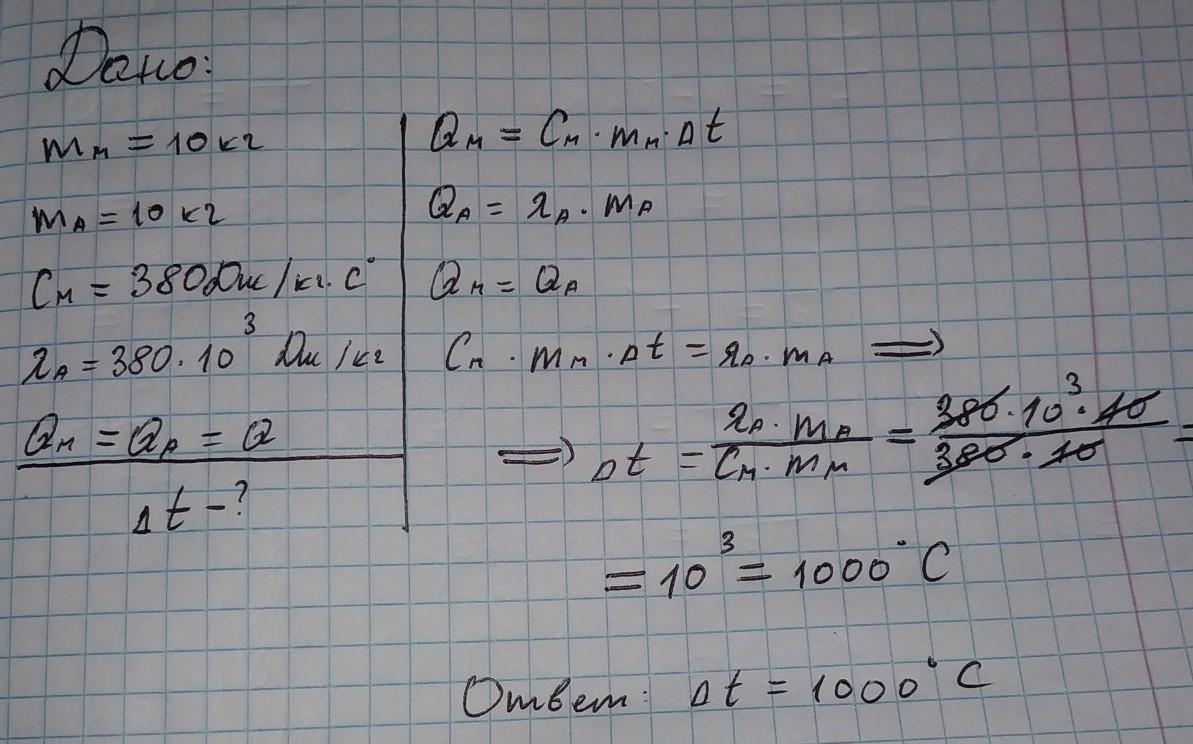 Дано:
mм = 10 кг
mА = 10 кг
Cм = 380 Дж/кг·С°
λА = 380·10³ Дж/кг
Qм = QА = Q
Δt - ?
Qм = Cм · mм · Δt
QА = λА · mА
Qм = QА
Cм · mм · Δt = λА · mА ⟹
⟹ Δt = λА · mА / Cм · mм = 380·10³·10 / 380·10 =
= 10³ = 1000°С
Ответ: Δt = 1000°С